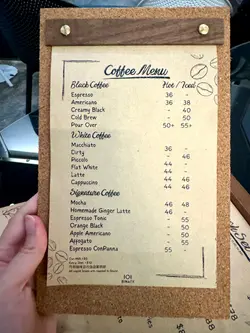 Coffee Menu
Black Coffee Hot / Iced
Espresso 36 -
Americano 36 38
Creamy Black - 40
Cold Brew - 50
Pour Over 50+ 55+
White Coffee
Macchiato 36 -
Dirty - 46
Piccolo 44 -
Flat White 44 -
Latte 44 46
Cappuccino 44 46
Signature Coffee
Mocha 46 48
Homemade Ginger Latte 44 46
Espresso Tonic - 55
Orange Black - 50
Apple Americano - 50
Affogato - 55
Espresso ConPanna 55 -
101